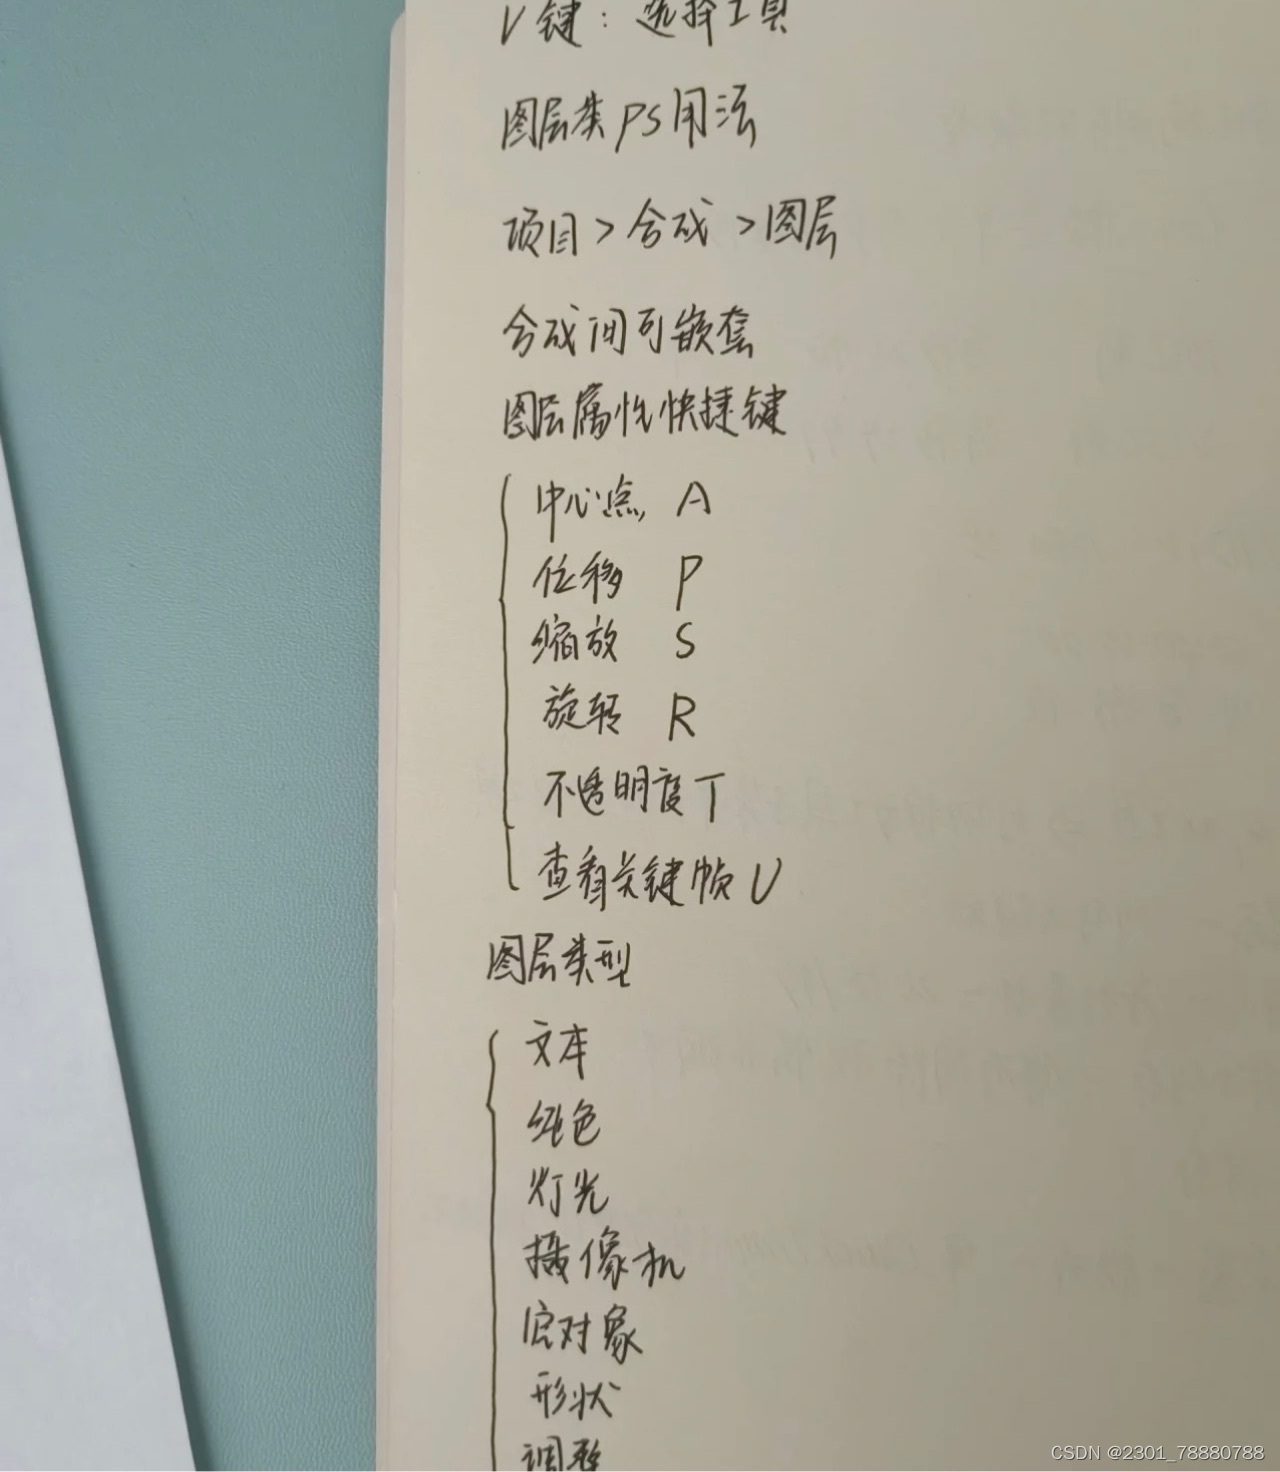 V键：选择工具
图层类PS用法
项目>合成>图层
合成间可嵌套
图层属性快捷键
中心点 A
位移 P
缩放 S
旋转 R
不透明度 T
查看关键帧 U
图层类型
文本
纯色
灯光
摄像机
空对象
形状
调整
CSDN @2301_78880788